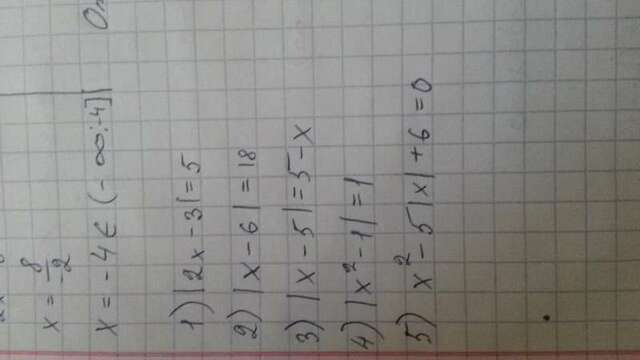 x = 8/-2
x = -4 ∈ (-∞; -4]
1) |2x - 3| = 5
2) |x - 6| = 18
3) |x - 5| = 5 - x
4) |x² - 1| = 1
5) x² - 5|x| + 6 = 0